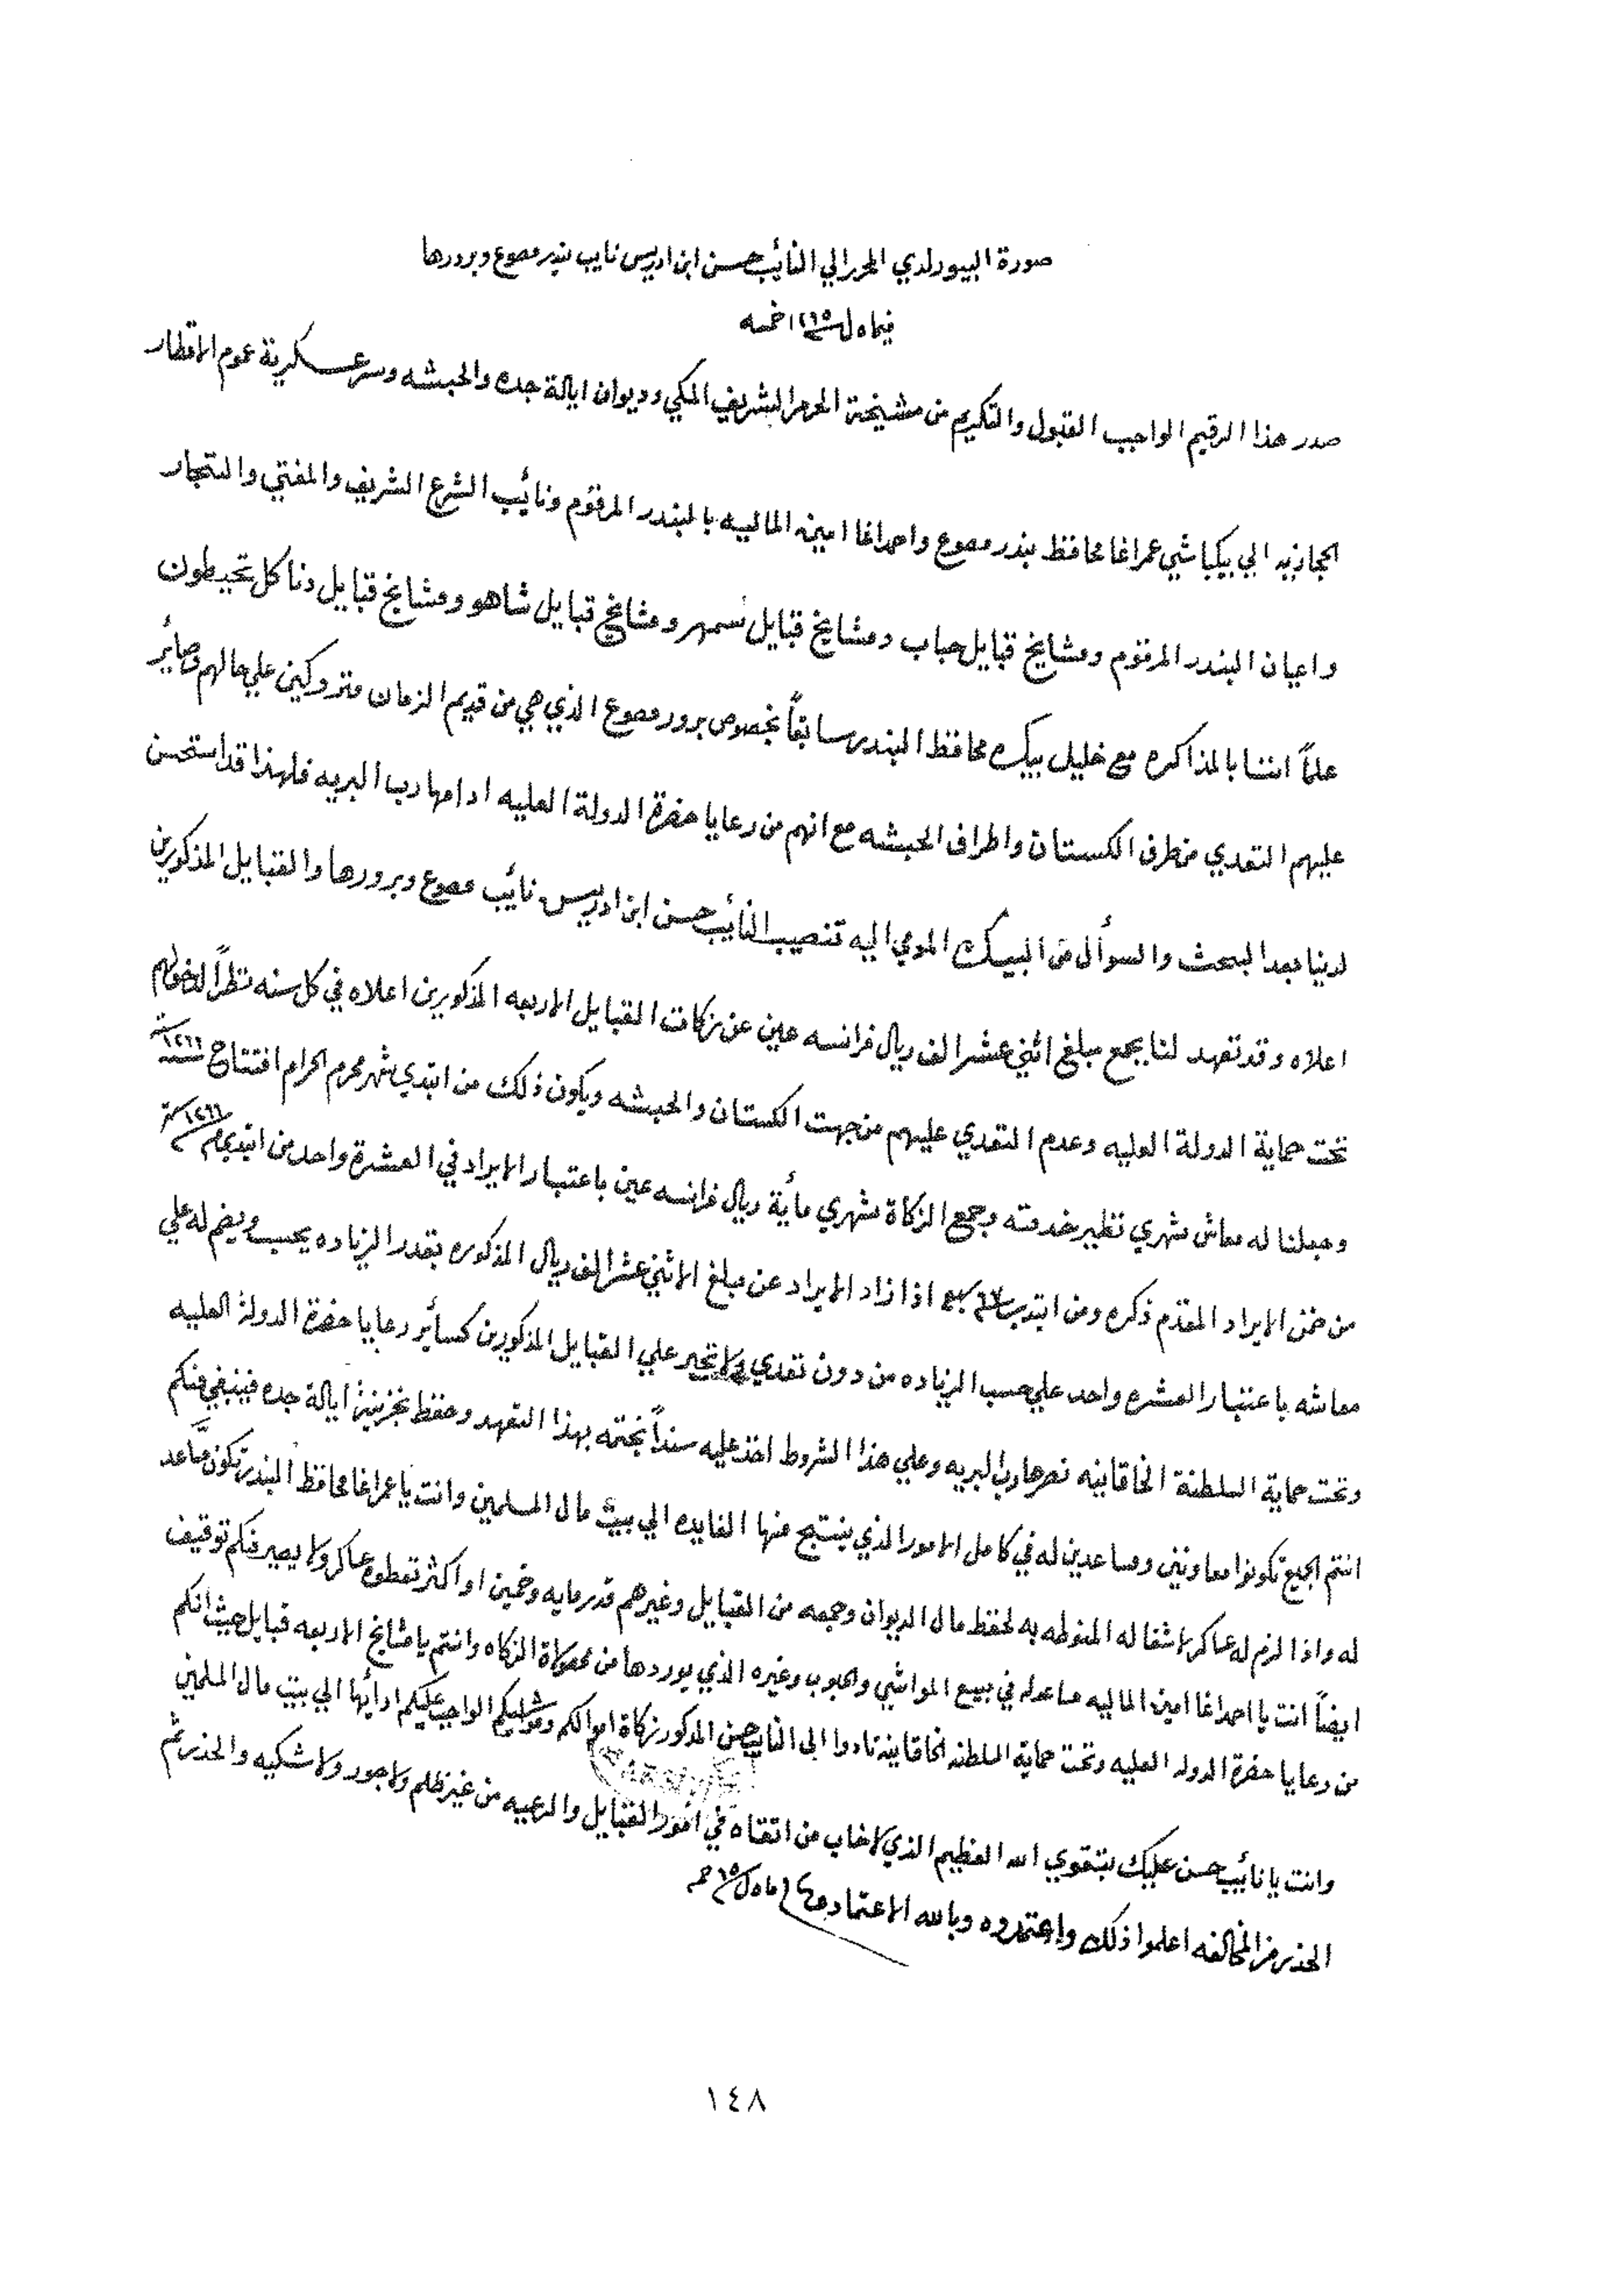 صورة البيورلدي المحرر الي النائب حسن ابن ادريس نايب بندر مصوع وبرورها
في ل سنة ١٢٦٥
صدر هذا الرقيم الواجب القبول والتكريم من مشيخة الحرم الشريف المكي وديوان ايالة جده والحبشه وسرعسكرية عموم الاقطار
الحجازيه الي بيكباشي عمراغا محافظ بندر مصوع واحمداغا امين الماليه بالبندر المرقوم ونائب الشرع الشريف والمفتي والتجار
واعيان البندر المرقوم ومشايخ قبايل حباب ومشايخ قبايل سمهر ومشايخ قبايل شاهو ومشايخ قبايل دناكل تحيطون
علماً اننا بالمذاكره مع خليل بيك محافظ البندر سابقاً بخصوص برور مصوع الذي هي من قديم الزمان متروكين علي حالهم وصائر
عليهم التعدي من طرف الكستان واطراف الحبشه مع انهم من رعايا حضرة الدولة العليه ادامها رب البريه فلهذا قد استحسن
لدينا بعد البحث والسوأل من البيك المومي اليه تنصيب النائب حسن ابن ادريس نائب مصوع وبرورها والقبايل المذكورين
اعلاه وقد تعهد لنا بجمع مبلغ اثني عشر الف ريال فرانسه عين عن زكات القبايل الاربعه المذكورين اعلاه في كل سنه نظراً لدخولهم
تحت حماية الدولة العليه وعدم التعدي عليهم من جهت الكستان والحبشه ويكون ذلك من ابتدي شهر محرم الحرام افتتاح سنة ١٢٦٦
وجعلنا له معاش شهري نظير خدمته وجمع الزكاة شهري مأية ريال فرانسه عين باعتبار الايراد في العشرة واحد من ابتدي م سنة ١٢٦٦
من ضمن الايراد المقدم ذكره ومن ابتدي اذا زاد الايراد عن مبلغ الاثني عشر الف ريال المذكوره بقدر الزياده يحسب ويضم له علي
معاشه باعتبار العشره واحد علي حسب الزياده من دون تعدي ولا تجبر علي القبايل المذكورين كسائر رعايا حضرة الدولة العليه
وتحت حماية السلطنة الخاقانيه نصرها رب البريه وعلي هذا الشروط اخذ عليه سنداً بختمه بهذا التعهد وحفظ بخزينة ايالة جده فينبغي منكم
انتم الجميع تكونوا معاونين ومساعدين له في كامل الامور الذي ينتج منها الفايده الي بيت مال المسلمين وانت يا عمراغا محافظ البندر تكون مساعد
له واذا لزم له عساكر لاشغاله المنوطه به لحفظ مال الديوان وجمعه من القبايل وغيرهم قدر مايه وخمسين او اكثر تعطوه عساكر ولا يصير منكم توقيف
ايضاً انت يا احمداغا امين الماليه مساعد له في بيع المواشي والحبوب وغيره الذي يوردها من محصولات الزكاه وانتم يا مشايخ الاربعه قبايل حيث انكم
من رعايا حضرة الدوله العليه وتحت حماية السلطنه الخاقانيه تادوا الى النايب حسن المذكور زكاة اموالكم ومواشيكم الواجب عليكم ادائها الي بيت مال المسلمين
وانت يا نائب حسن عليك بتقوي الله العظيم الذي لا خاب من اتقاه في امور القبايل والرعيه من غير ظلم ولا جور ولا شكيه والحذر ثم
الحذر من المخالفه اعلموا ذلك واعتمدوه وبالله الاعتماد
١٤٨